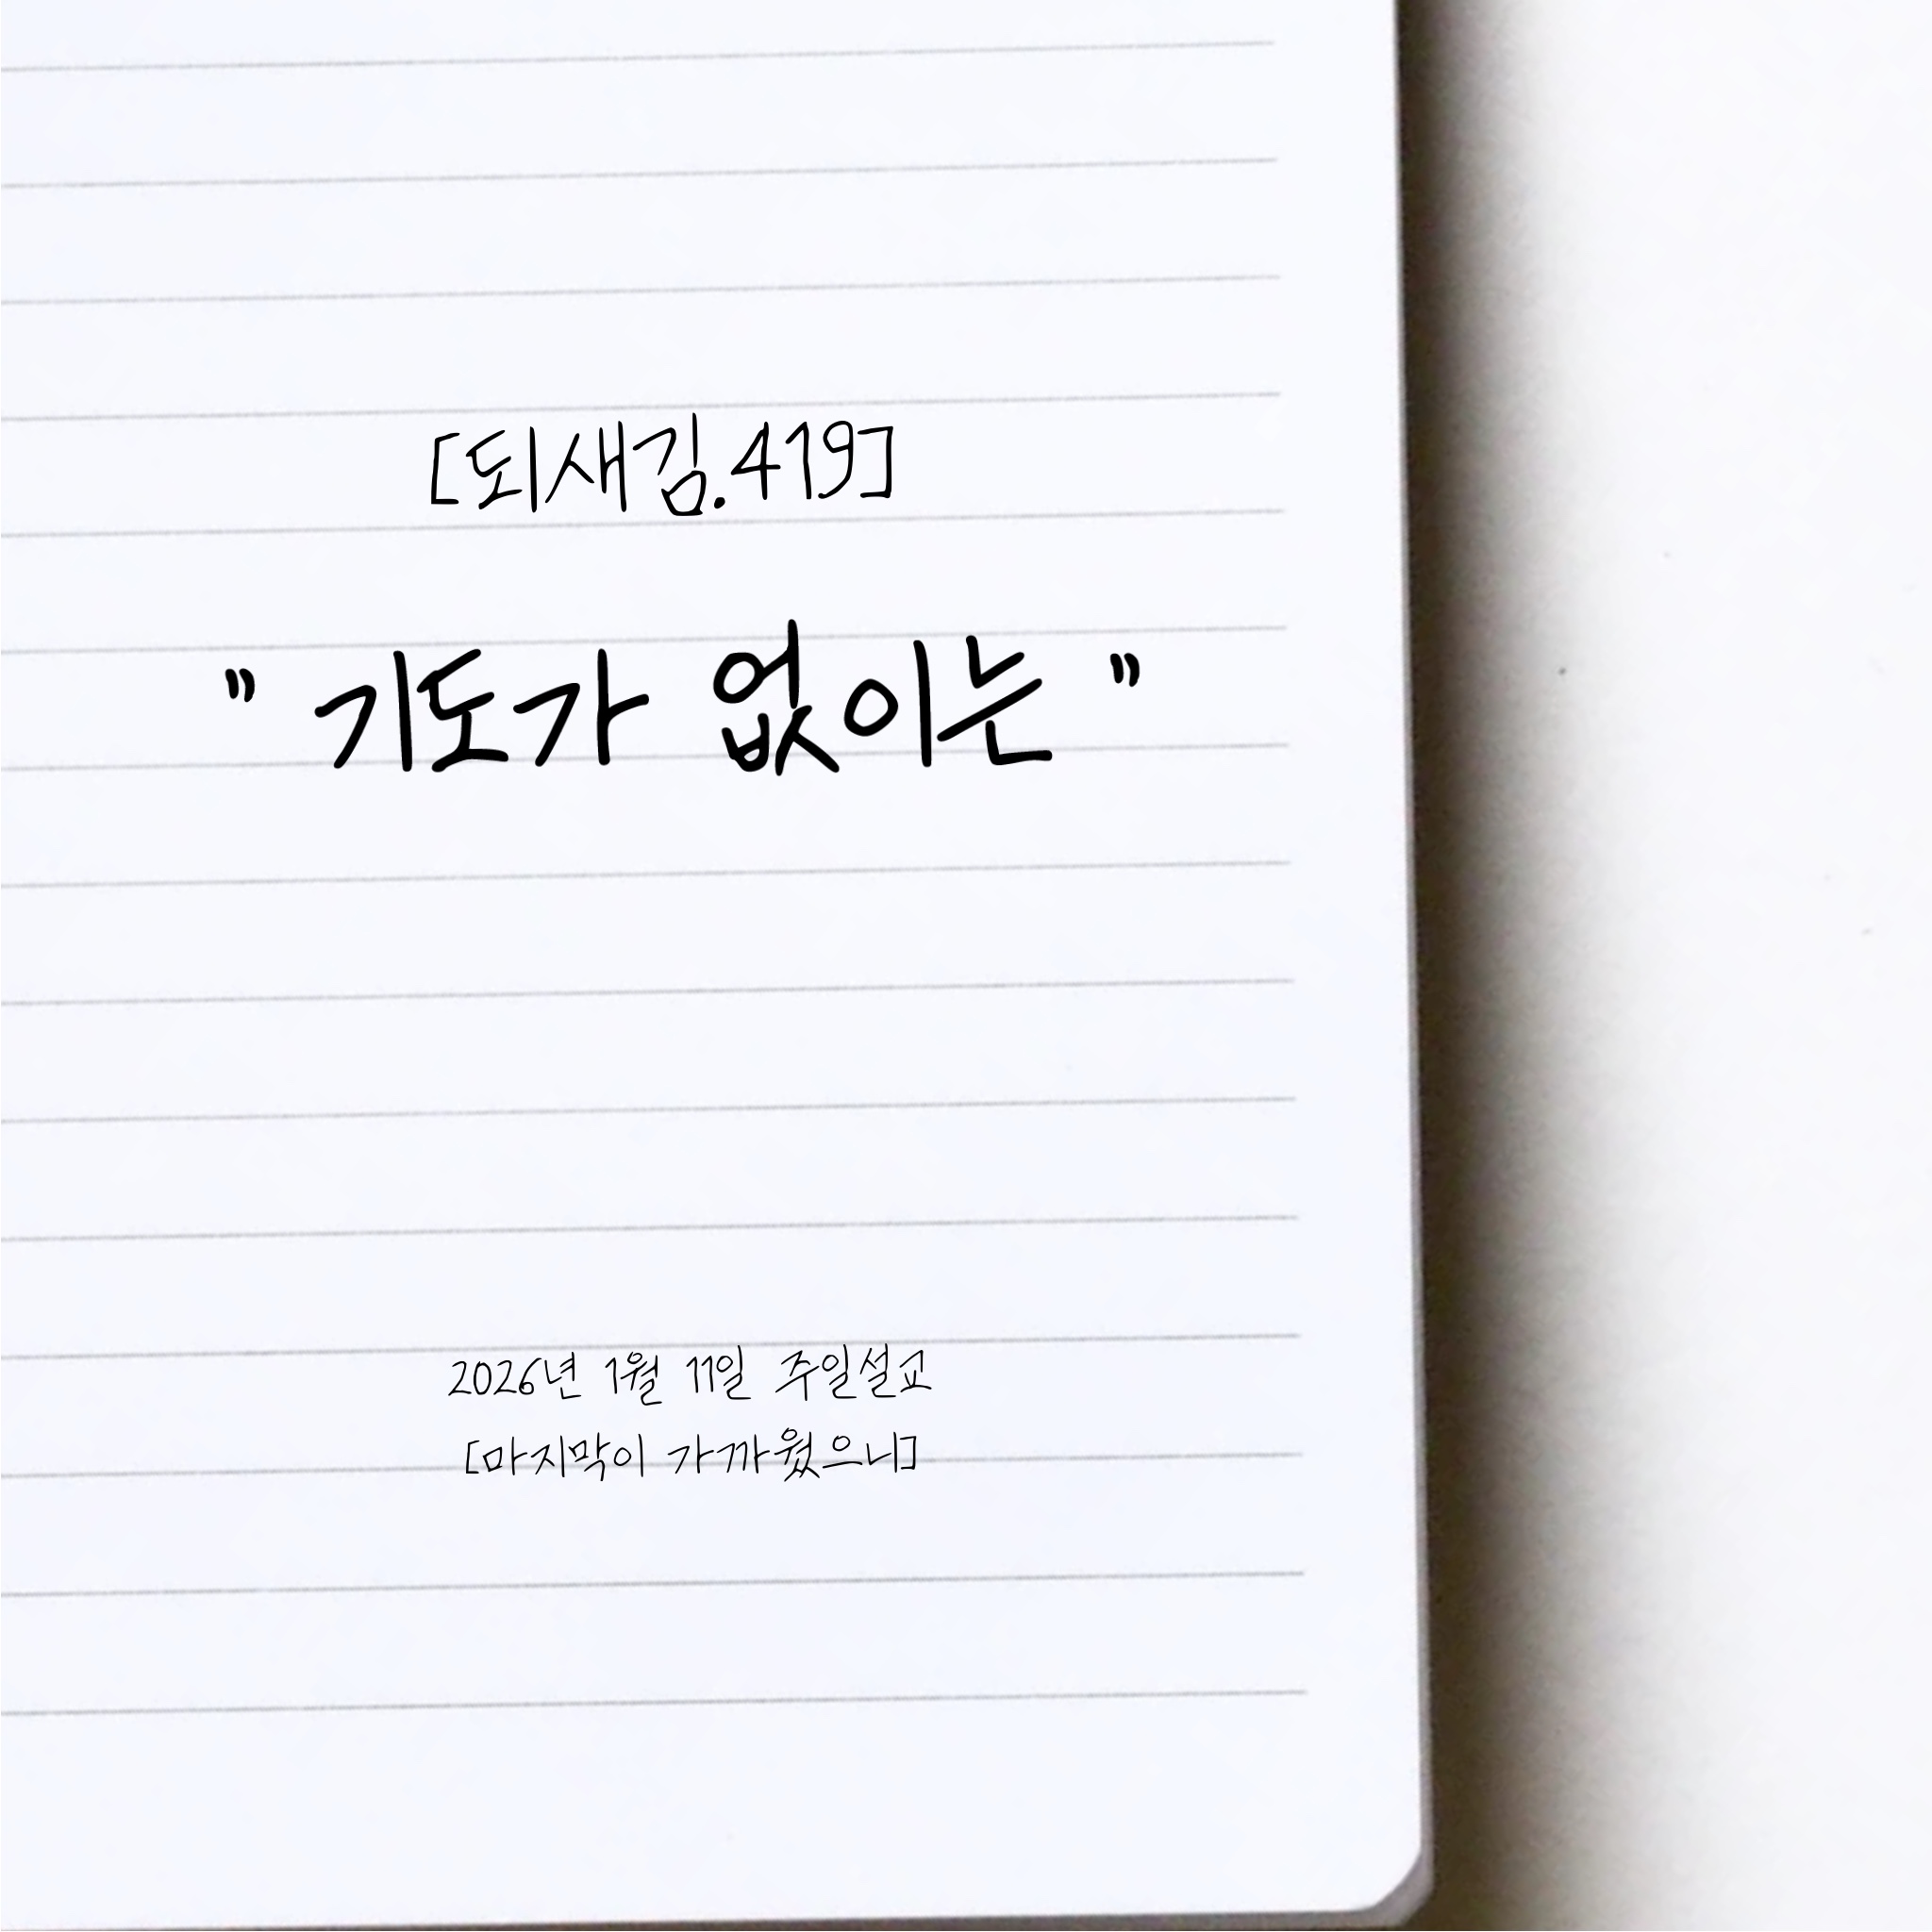 [되새김.419]
" 기도가 없이는 "
2026년 1월 11일 주일설교
[마지막이 가까웠으니]